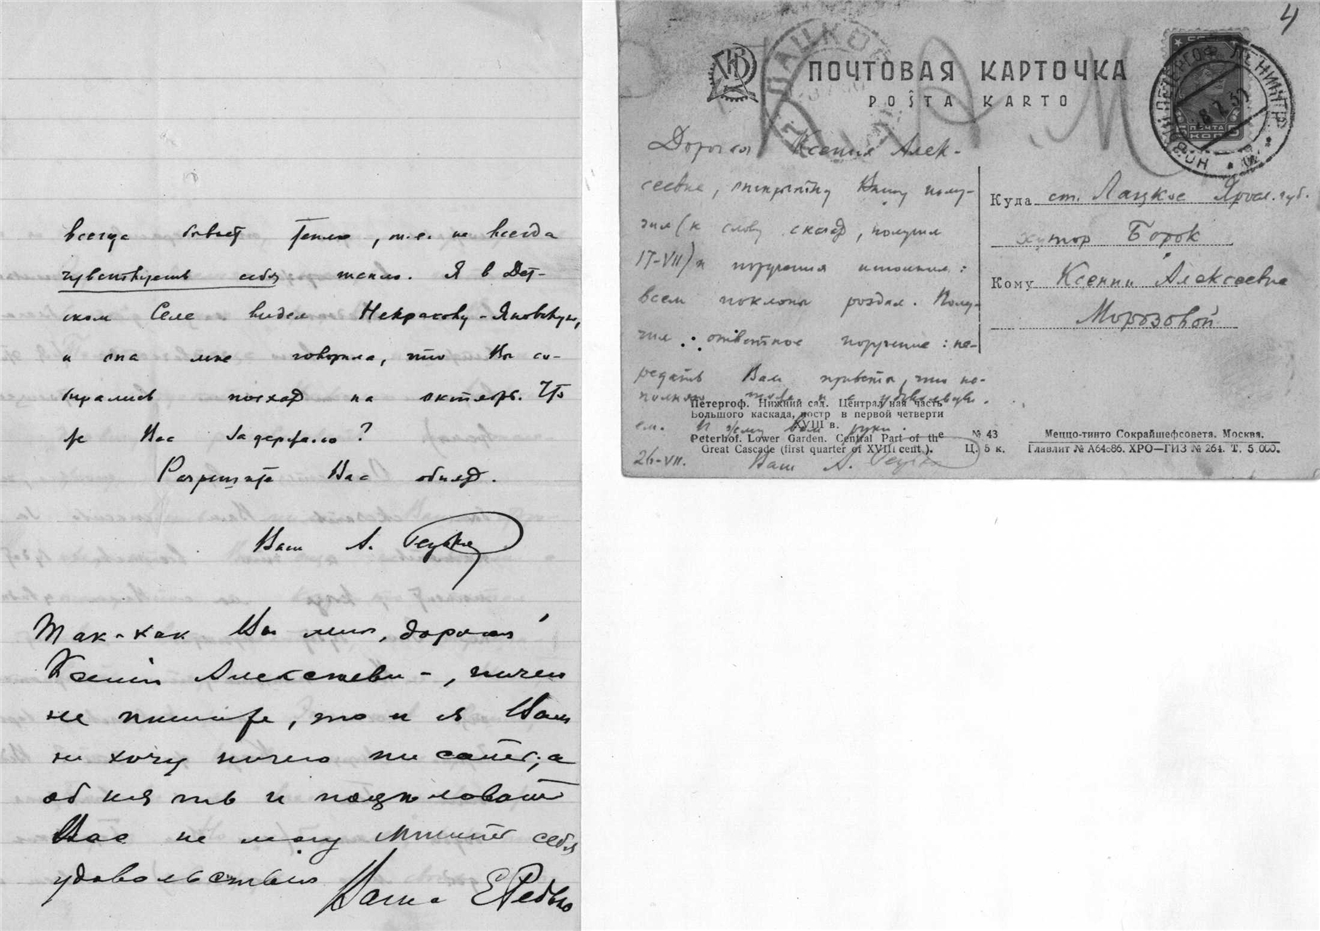 всегда бывает тепло, т.е. не всегда
чувствуешь себя тепло. Я в Дет-
ском Селе видел Некрасову-Яновскую,
и она мне говорила, что Вы со-
бирались поехать на октябрь. Что
же Вас задержало?
Разрешите Вас обнять.
Ваш А.
Так-как Вы мне, дорогая
Ксения Алексеевна, ничего
не пишете, то и я Вам
не хочу ничего писать, а
обнять и поцеловать
Вас не могу лишить себя
удовольствия
Ваша Е.
4
ПОЧТОВАЯ КАРТОЧКА
POŜTA KARTO
ЛАЦКОЕ
НОВЫЙ ПЕТЕРГОФ ЛЕНИНГР.
ПОЧТА
КОП
Дорогая Ксения Алек-
сеевна, открытку Вашу полу-
чил (к слову сказать, получил
17-VII) и поручения исполнил:
всем поклоны роздал. Полу-
чил ответное поручение: пе-
редать Вам приветы, что ис-
полняю с удовольстви-
ем. Жму Вам руки.
26-VII. Ваш А.
Куда ст. Лацкое Яросл. губ.
хутор Борок
Кому Ксении Алексеевне
Морозовой
Петергоф. Нижний сад. Центральная часть
Большого каскада, постр в первой четверти
XVIII в.
Peterhof. Lower Garden. Central Part of the
Great Cascade (first quarter of XVIII cent.).
№ 43
Ц. 5 к.
Меццо-тинто Сокрайшефсовета. Москва.
Главлит № А64686. ХРО—ГИЗ № 264. Т. 5 000.